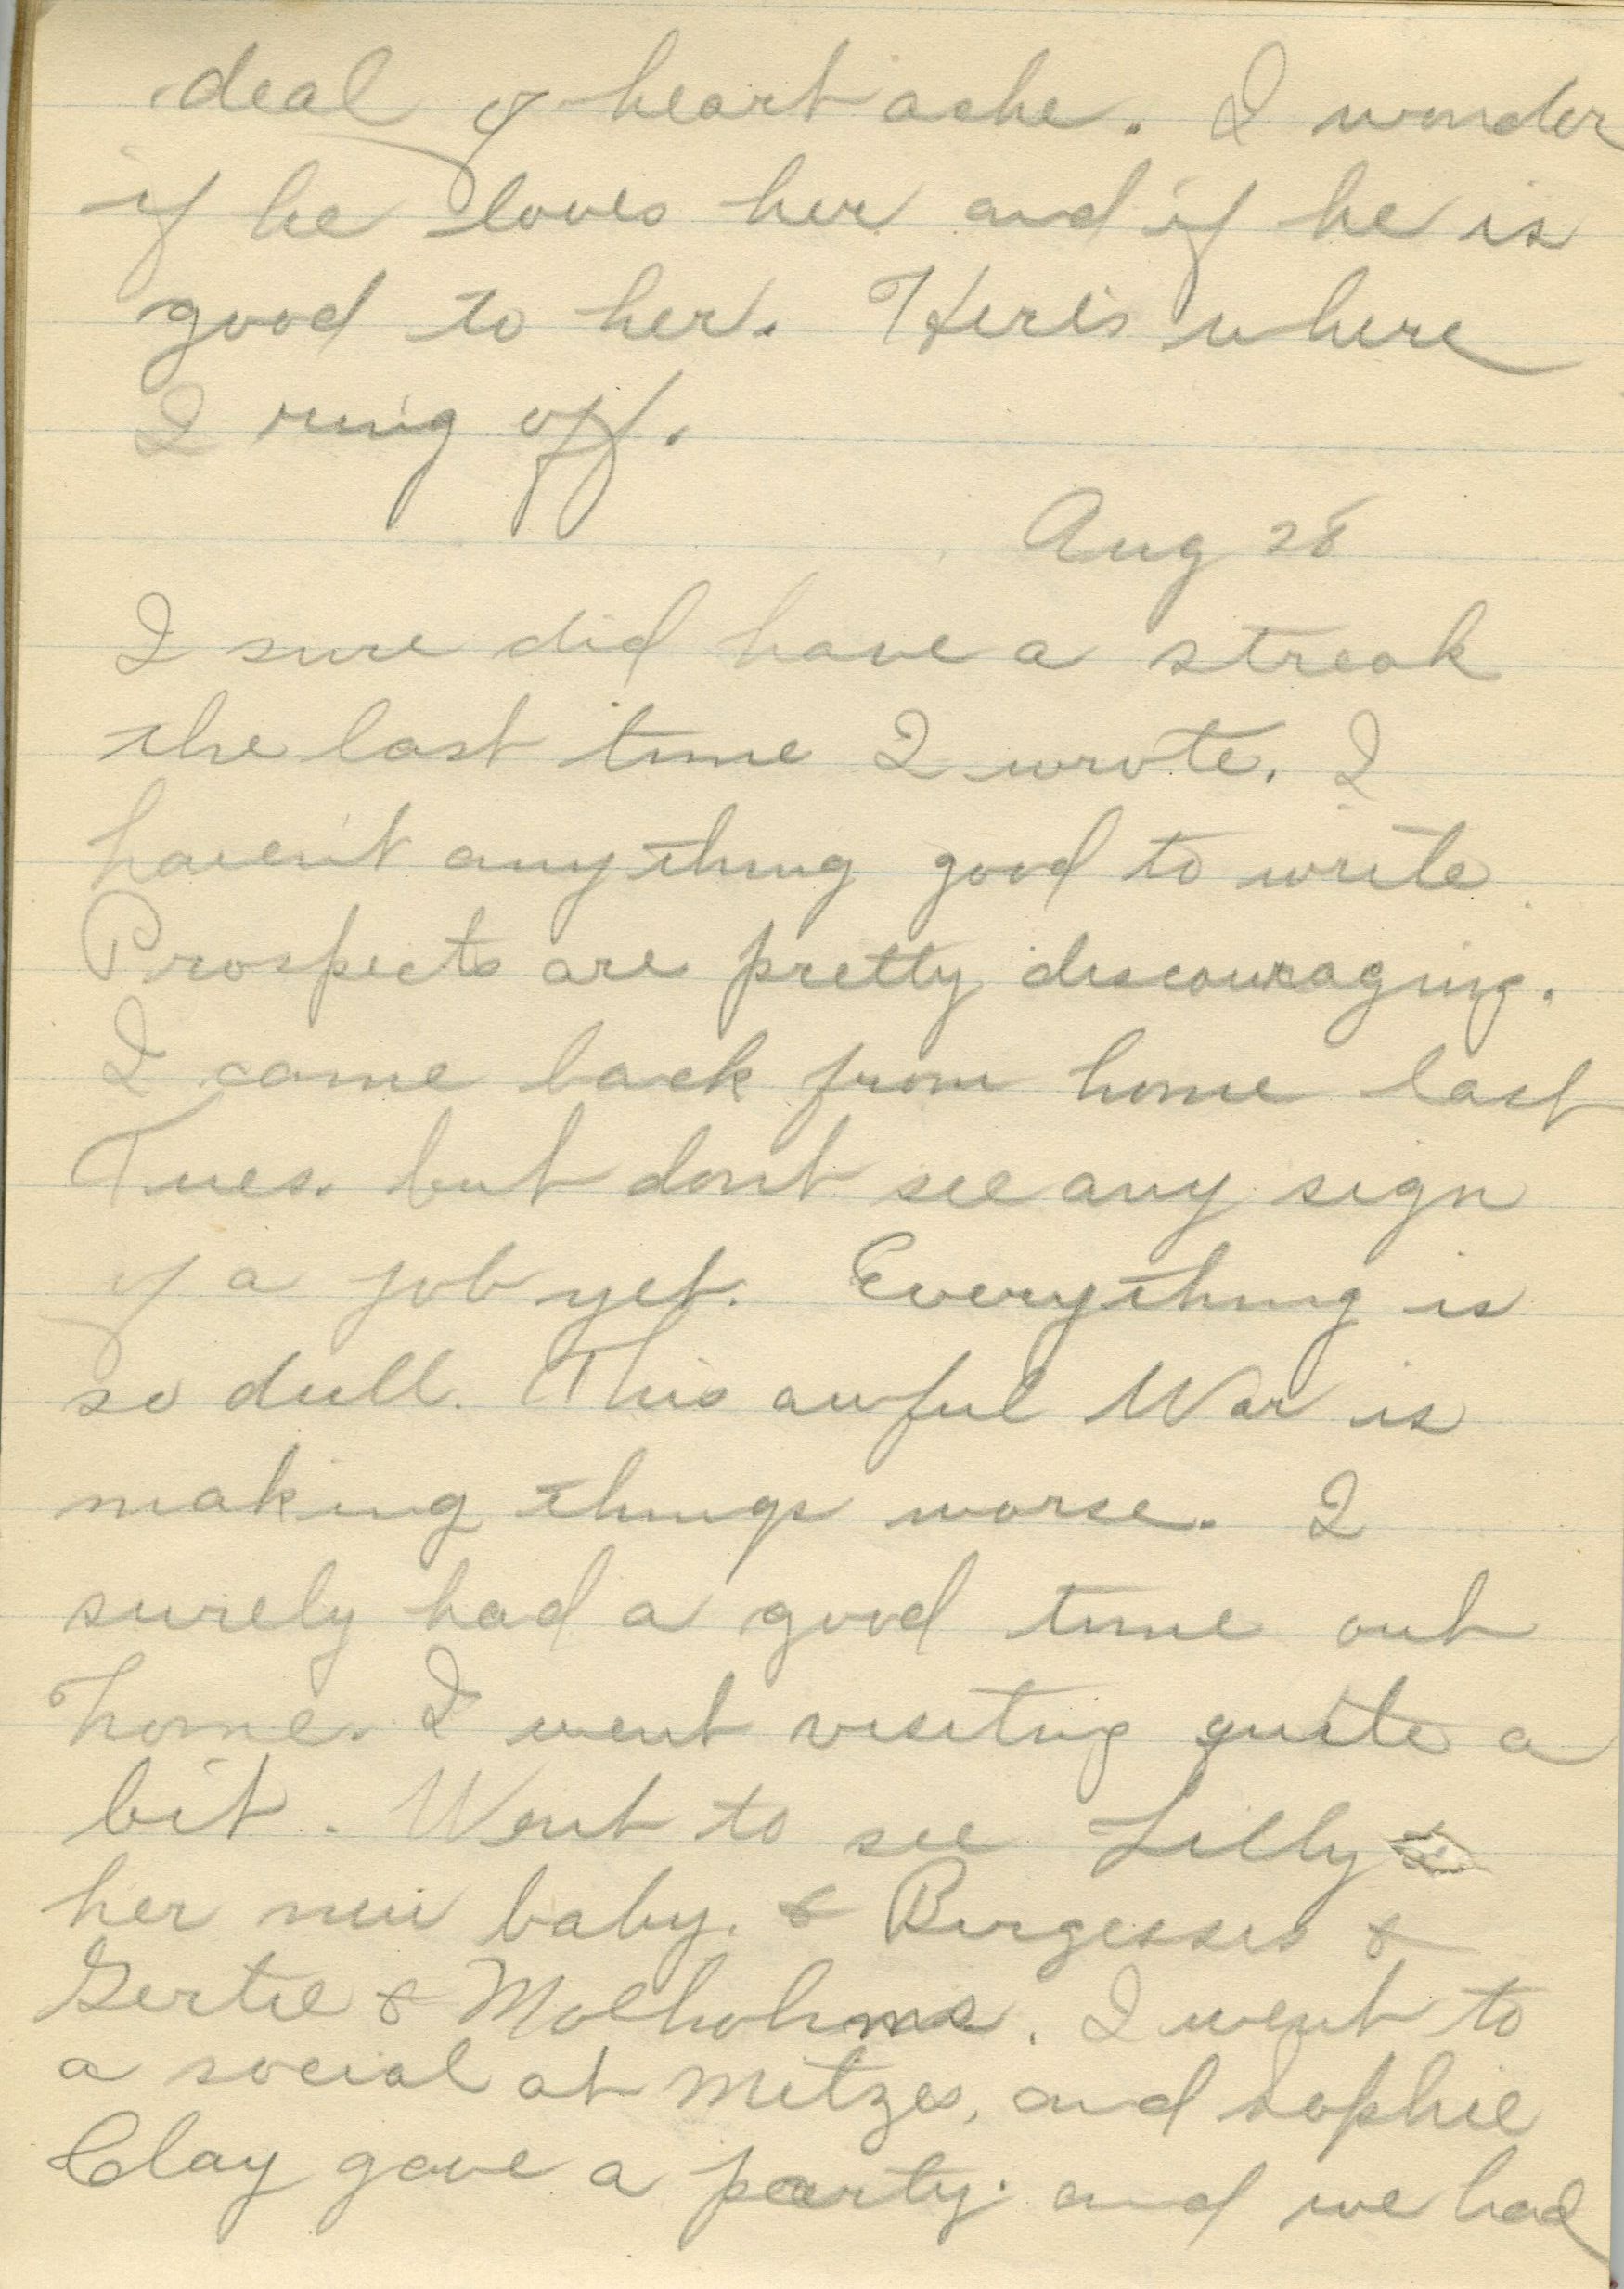 deal of heart ache. I wonder
if he loves her and if he is
good to her. Here's where
I ring off.
Aug 28
I sure did have a streak
the last time I wrote. I
haven't anything good to write
Prospects are pretty discouraging.
I came back from home last
Tues. but dont see any sign
of a job yet. Everything is
so dull. This awful War is
making things worse. I
surely had a good time out
home. I went visiting quite a
bit. Went to see Lilly &
her new baby. & Burgesses &
Gertie & Molholms. I went to
a social at Mitzes, and Sophie
Clay gave a party. and we had